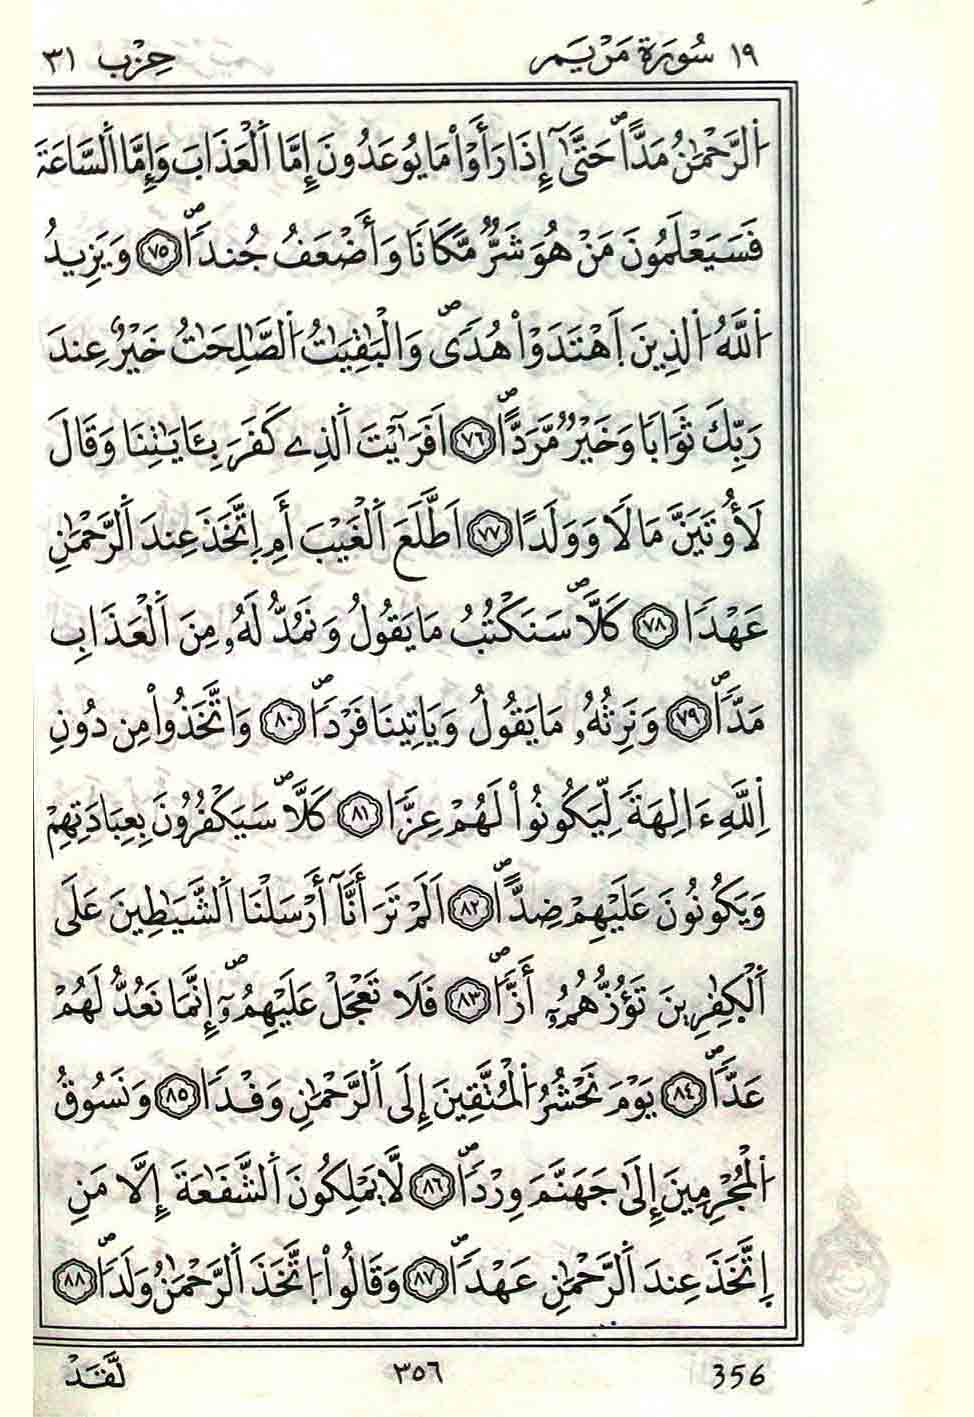 ١٩ سُورَة مَرْيَم حِزْب ٣١
اَ۬لرَّحْمَٰنُ مَدّاًۖ حَتَّىٰٓ إِذَا رَأَوْاْ مَا يُوعَدُونَ إِمَّا اَ۬لْعَذَابَ وَإِمَّا اَ۬لسَّاعَةَ
فَسَيَعْلَمُونَ مَنْ هُوَ شَرّٞ مَّكَاناٗ وَأَضْعَفُ جُنداٗۖ ٧٥ وَيَزِيدُ
اُ۬للَّهُ اُ۬لذِينَ اَ۪هْتَدَوْاْ هُدىٗۖ وَالْبَٰقِيَٰتُ اُ۬لصَّٰلِحَٰتُ خَيْرٌ عِندَ
رَبِّكَ ثَوَاباٗ وَخَيْرٞ مَّرَدّاًۖ ٧٦ اَفَرَٰٓيْتَ اَ۬لذِے كَفَرَ بِـَٔايَٰتِنَا وَقَالَ
لَأُوتَيَنَّ مَالاٗ وَوَلَداً ٧٧ اَطَّلَعَ اَ۬لْغَيْبَ أَمِ اِ۪تَّخَذَ عِندَ اَ۬لرَّحْمَٰنِ
عَهْداٗ ٧٨ كَلَّاۖ سَنَكْتُبُ مَا يَقُولُ وَنَمُدُّ لَهُۥ مِنَ اَ۬لْعَذَابِ
مَدّاٗۖ ٧٩ وَنَرِثُهُۥ مَا يَقُولُ وَيَاتِينَا فَرْداٗۖ ٨٠ وَاتَّخَذُواْ مِن دُونِ
اِ۬للَّهِ ءَالِهَةٗ لِّيَكُونُواْ لَهُمْ عِزّاٗ ٨١ كَلَّاۖ سَيَكْفُرُونَ بِعِبَادَتِهِمْ
وَيَكُونُونَ عَلَيْهِمْ ضِدّاًۖ ٨٢ اَلَمْ تَرَ أَنَّآ أَرْسَلْنَا اَ۬لشَّيَٰطِينَ عَلَى
اَ۬لْكٰ۪فِرِينَ تَؤُزُّهُمُۥٓ أَزّاٗۖ ٨٣ فَلَا تَعْجَلْ عَلَيْهِمُۥٓۖ إِنَّمَا نَعُدُّ لَهُمْ
عَدّاٗۖ ٨٤ يَوْمَ نَحْشُرُ اُ۬لْمُتَّقِينَ إِلَى اَ۬لرَّحْمَٰنِ وَفْداٗ ٨٥ وَنَسُوقُ
اُ۬لْمُجْرِمِينَ إِلَىٰ جَهَنَّمَ وِرْداٗۖ ٨٦ لَّا يَمْلِكُونَ اَ۬لشَّفَٰعَةَ إِلَّا مَنِ
اِ۪تَّخَذَ عِندَ اَ۬لرَّحْمَٰنِ عَهْداٗۖ ٨٧ وَقَالُواْ اُ۪تَّخَذَ اَ۬لرَّحْمَٰنُ وَلَداٗۖ ٨٨
356 ٣٥٦ لَّقَدْ